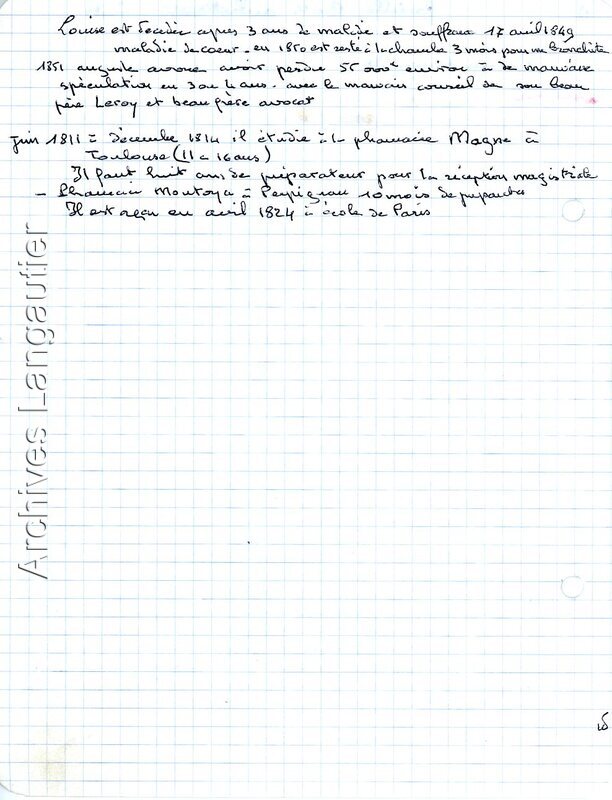 Louise est décédée apres 3 ans de maladie et souffrance 17 avril 1849
maladie de coeur - en 1850 est resté à la chambre 3 mois pour une bronchite
1851 auguste avoue avoir perdu 55 000 environ à de mauvaise
spéculation en 3 ou 4 ans. avec le mauvais conseil de son beau
père Leroy et beau frère avocat
Juin 1811 à décembre 1814 il étudie à la pharmacie Magne à
Toulouse (11 a 16 ans)
Il faut huit ans de préparateur pour la réception magistrale
- Pharmacie Montoya à Perpignan 10 mois de
Il est reçu en avril 1824 à école de Paris
Archives Langautier